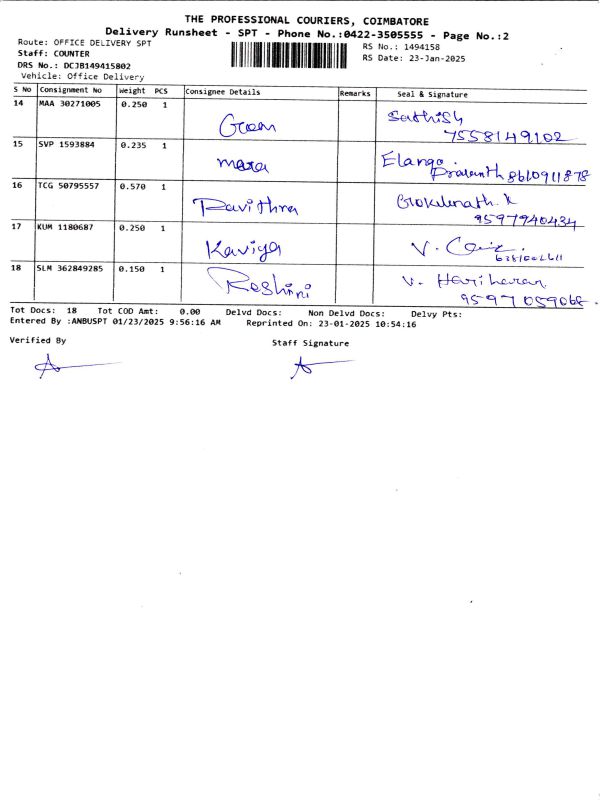 THE PROFESSIONAL COURIERS, COIMBATORE
Delivery Runsheet - SPT - Phone No.:0422-3505555 - Page No.:2
Route: OFFICE DELIVERY SPT
Staff: COUNTER
DRS No.: DCJB149415802
Vehicle: Office Delivery
RS No.: 1494158
RS Date: 23-Jan-2025
S No Consignment No Weight PCS Consignee Details Remarks Seal & Signature
14 MAA 30271005 0.250 1 Sathish
7558149102
15 SVP 1593884 0.235 1 Elango.
Prasanth 8610911878
16 TCG 50795557 0.570 1 Pavithra Gokulnath. K
9597940434
17 KUM 1180687 0.250 1 Kaviya V.
18 SLM 362849285 0.150 1 Roshini V. Hariharan
9597059068
Tot Docs: 18 Tot COD Amt: 0.00 Delvd Docs: Non Delvd Docs: Delvy Pts:
Entered By :ANBUSPT 01/23/2025 9:56:16 AM Reprinted On: 23-01-2025 10:54:16
Verified By Staff Signature